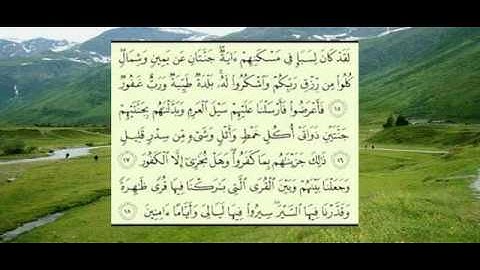 لَقَدْ كَانَ لِسَبَإٍ فِى مَسْكَنِهِمْ ءَايَةٌ ۖ جَنَّتَانِ عَن يَمِينٍ وَشِمَالٍ ۖ
كُلُوا۟ مِن رِّزْقِ رَبِّكُمْ وَٱشْكُرُوا۟ لَهُۥ ۚ بَلْدَةٌ طَيِّبَةٌ وَرَبٌّ غَفُورٌ
١٥ فَأَعْرَضُوا۟ فَأَرْسَلْنَا عَلَيْهِمْ سَيْلَ ٱلْعَرِمِ وَبَدَّلْنَٰهُم بِجَنَّتَيْهِمْ
جَنَّتَيْنِ ذَوَاتَىْ أُكُلٍ خَمْطٍ وَأَثْلٍ وَشَىْءٍ مِّن سِدْرٍ قَلِيلٍ
١٦ ذَٰلِكَ جَزَيْنَٰهُم بِمَا كَفَرُوا۟ ۖ وَهَلْ نُجَٰزِىٓ إِلَّا ٱلْكَفُورَ ١٧
وَجَعَلْنَا بَيْنَهُمْ وَبَيْنَ ٱلْقُرَى ٱلَّتِى بَٰرَكْنَا فِيهَا قُرًى ظَٰهِرَةً
وَقَدَّرْنَا فِيهَا ٱلسَّيْرَ ۖ سِيرُوا۟ فِيهَا لَيَالِىَ وَأَيَّامًا ءَامِنِينَ ١٨